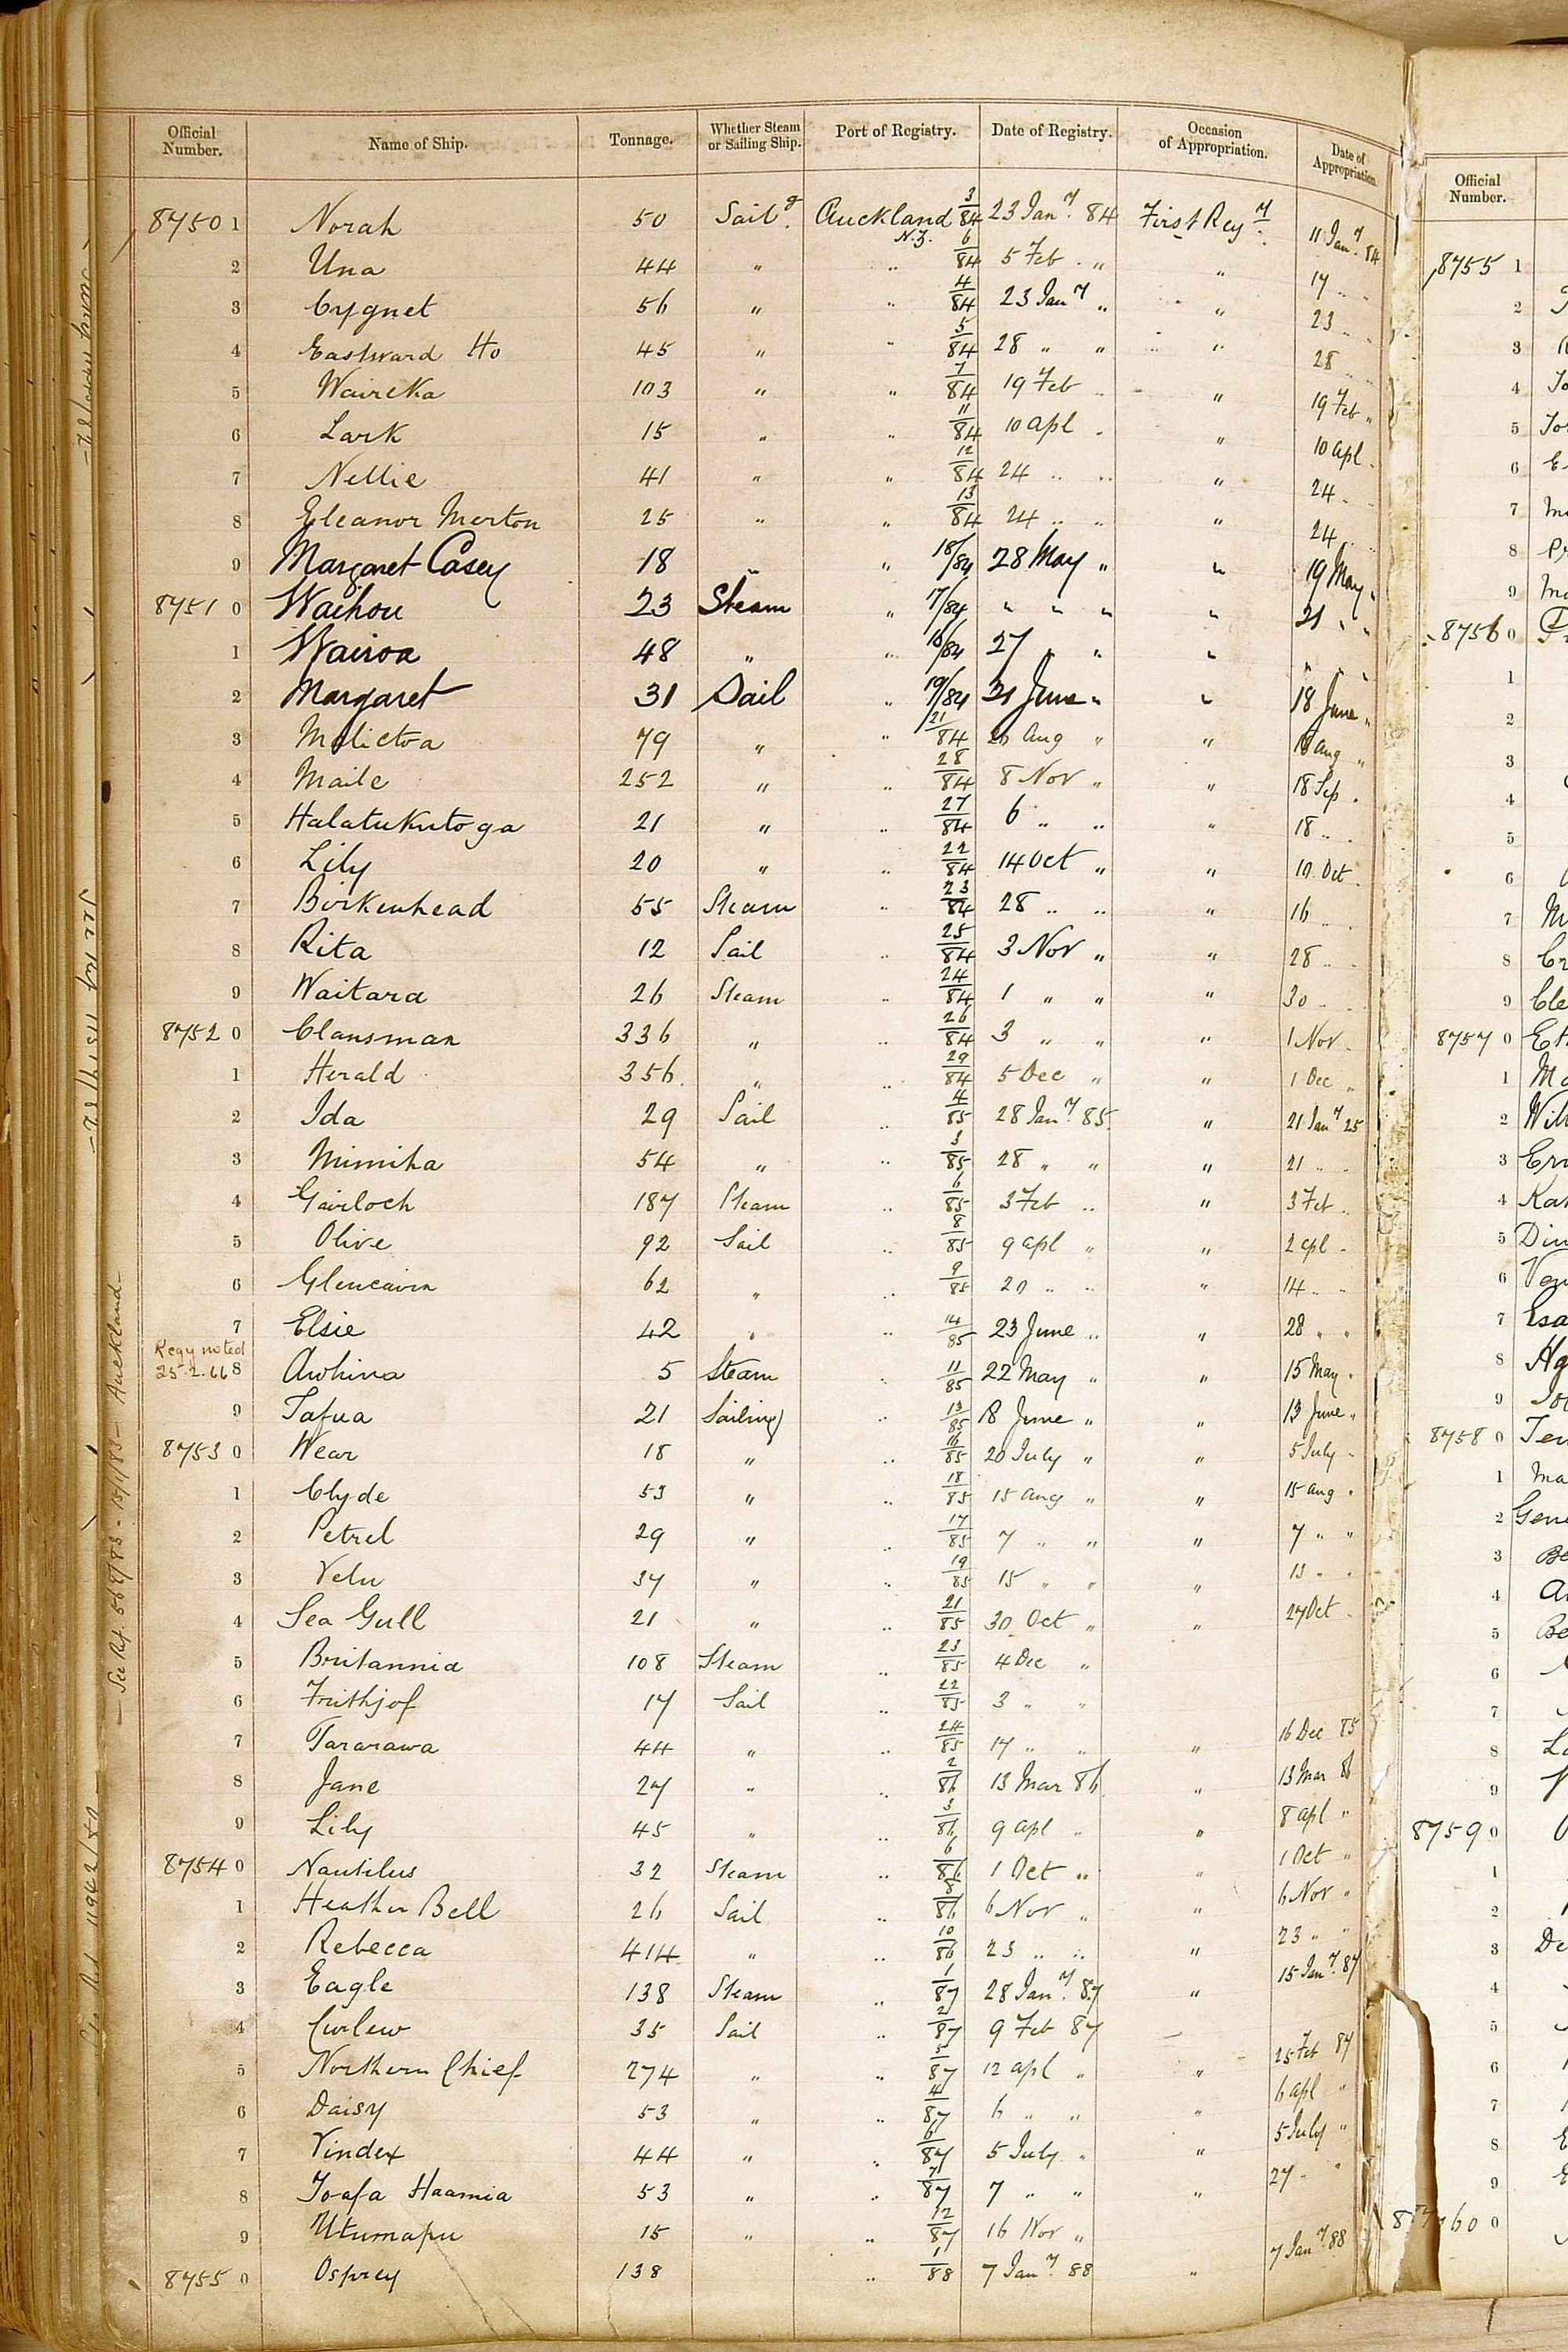 Official Number. Name of Ship. Tonnage. Whether Steam or Sailing Ship. Port of Registry. Date of Registry. Occasion of Appropriation. Date of Appropriation.
87501 Norah 50 Sailg. Auckland N.Z. 3/84 23 Jany. 84 First Regy. 11 Jany. 84
2 Una 44 " " 6/84 5 Feb " " 17 "
3 Cygnet 56 " " 4/84 23 Jany " " 23 "
4 Eastward Ho 45 " " 5/84 28 " " " 28 "
5 Waireka 103 " " 7/84 19 Feb " " 19 Feb "
6 Lark 15 " " 11/84 10 Apl " " 10 Apl "
7 Nellie 41 " " 12/84 24 " " " 24 "
8 Eleanor Merton 25 " " 13/84 24 " " " 24 "
9 Margaret Casey 18 " " 18/84 28 May " " 19 May "
87510 Waihou 23 Steam " 17/84 " " " " 21 " "
1 Wairoa 48 " " 16/84 27 " " " " "
2 Margaret 31 Sail " 19/84 21 June " " 18 June "
3 79 " " 21/84 Aug " " 18 Aug "
4 Maile 252 " " 28/84 8 Nov " " 18 Sep "
5 Halatukutoga 21 " " 27/84 6 " " " 18 " "
6 Lily 20 " " 22/84 14 Oct " " 10 Oct "
7 Birkenhead 55 Steam " 23/84 28 " " " 16 "
8 Rita 12 Sail " 25/84 3 Nov " " 28 " "
9 Waitara 26 Steam " 24/84 1 " " " 30 "
87520 Clansman 336 " " 26/84 3 " " " 1 Nov "
1 Herald 356 " " 29/84 5 Dec " " 1 Dec "
2 Ida 29 Sail " 4/85 28 Jany. 85 " 21 Jany 25
3 Mimiha 54 " " 3/85 28 " " " 21 " "
4 Gairloch 187 Steam " 6/85 3 Feb " " 3 Feb "
5 Olive 92 Sail " 8/85 9 Apl " " 2 Apl "
6 Glencairn 62 " " 9/85 20 " " " 14 " "
7 Elsie 42 " " 14/85 23 June " " 28 " "
Regy noted 25.2.66
8 Awhina 5 Steam " 11/85 22 May " " 15 May "
9 Tafua 21 Sailing " 13/85 18 June " " 13 June "
87530 Wear 18 " " 16/85 20 July " " 5 July "
1 Clyde 53 " " 18/85 15 Aug " " 15 Aug "
2 Petrel 29 " " 17/85 7 " " " 7 " "
3 Velu 37 " " 19/85 15 " " " 13 " "
4 Sea Gull 21 " " 21/85 30 Oct " " 27 Oct "
5 Britannia 108 Steam " 23/85 4 Dec "
6 Frithjof 17 Sail " 22/85 3 " "
7 Tararawa 44 " " 24/85 17 " " " 16 Dec 85
8 Jane 27 " " 2/86 13 Mar 86 " 13 Mar 86
9 Lily 45 " " 3/86 9 Apl " " 8 Apl "
87540 Nautilus 32 Steam " 6/86 1 Oct " " 1 Oct "
1 Heather Bell 26 Sail " 8/86 6 Nov " " 6 Nov "
2 Rebecca 414 " " 10/86 23 " " " 23 " "
3 Eagle 138 Steam " 1/87 28 Jany. 87 " 15 Jany. 87
4 Curlew 35 Sail " 2/87 9 Feb 87
5 Northern Chief 274 " " 5/87 12 Apl " " 25 Feb 87
6 Daisy 53 " " 4/87 6 " " " 6 Apl "
7 Vindex 44 " " 6/87 5 July " " 5 July "
8 Toafa Haamia 53 " " 7/87 7 " " " 27 " "
9 Utumapu 15 " " 12/87 16 Nov "
87550 Osprey 138 " 1/88 7 Jany. 88 " 7 Jany. 88
See Ref. 567/83 - 15/1/83 - Auckland
Official Number.
8755 1
2
3
4
5
6
7
8
9
8756 0
1
2
3
4
5
6
7
8
9
8757 0
1
2
3
4
5
6
7
8
9
8758 0
1
2
3
4
5
6
7
8
9
8759 0
1
2
3
4
5
6
7
8
9
60 0